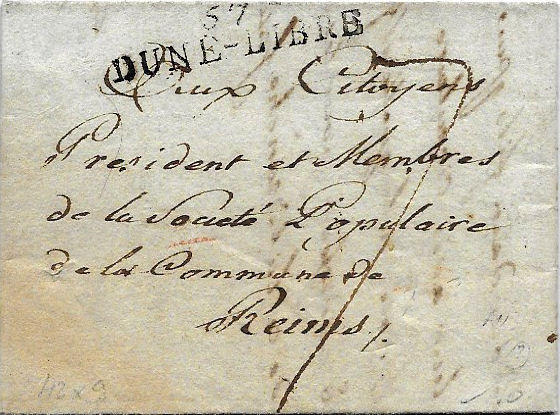 57
DUNE-LIBRE
Aux Citoyens
President et Membres
de la Societé Populaire
de la Commune de
Reims /.
7
112 x 9